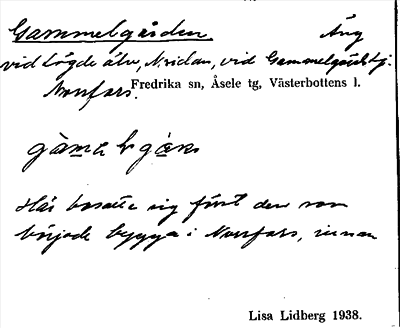 Gammelgården Äng
vid Lögde älv, N. sidan, vid Gammelgårdstj.
Norrfors. Fredrika sn, Åsele tg, Västerbottens l.
Här bosatte sig först den som
började bygga i Norrfors, innan
Lisa Lidberg 1938.